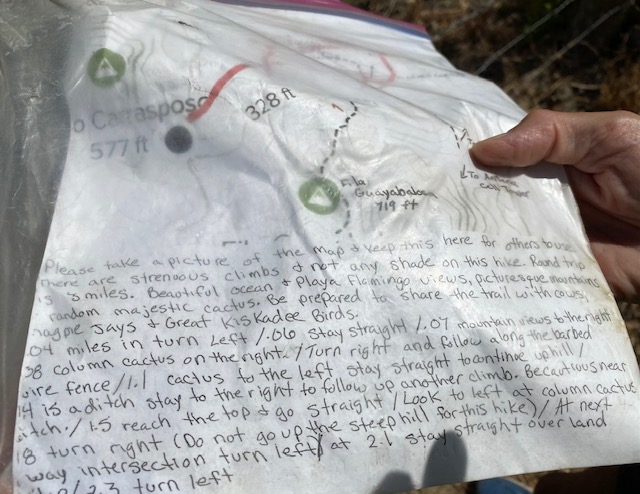 o Carrasposo
328 ft
577 ft
Fila
Guayabalosa
719 ft
To Antenna
Please take a picture of the map & keep this here for others to use
There are strenuous climbs & not any shade on this hike. Round trip
is 3 miles. Beautiful ocean & Playa Flamingo views, picturesque mountains
random majestic cactus. Be prepared to share the trail with cows,
magpie Jays & Great Kiskadee Birds.
.04 miles in turn left /.06 stay straight /.07 mountain views to the right
38 column cactus on the right. / Turn right and follow along the barbed
wire fence /1.1 cactus to the left stay straight to continue uphill /
14 is a ditch stay to the right to follow up another climb. Be cautious near
ditch. / 1.5 reach the top & go straight / Look to left at column cactus
18 turn right (Do not go up the steep hill for this hike) / At next
way intersection turn left / at 2.1 stay straight over land
2.3 turn left